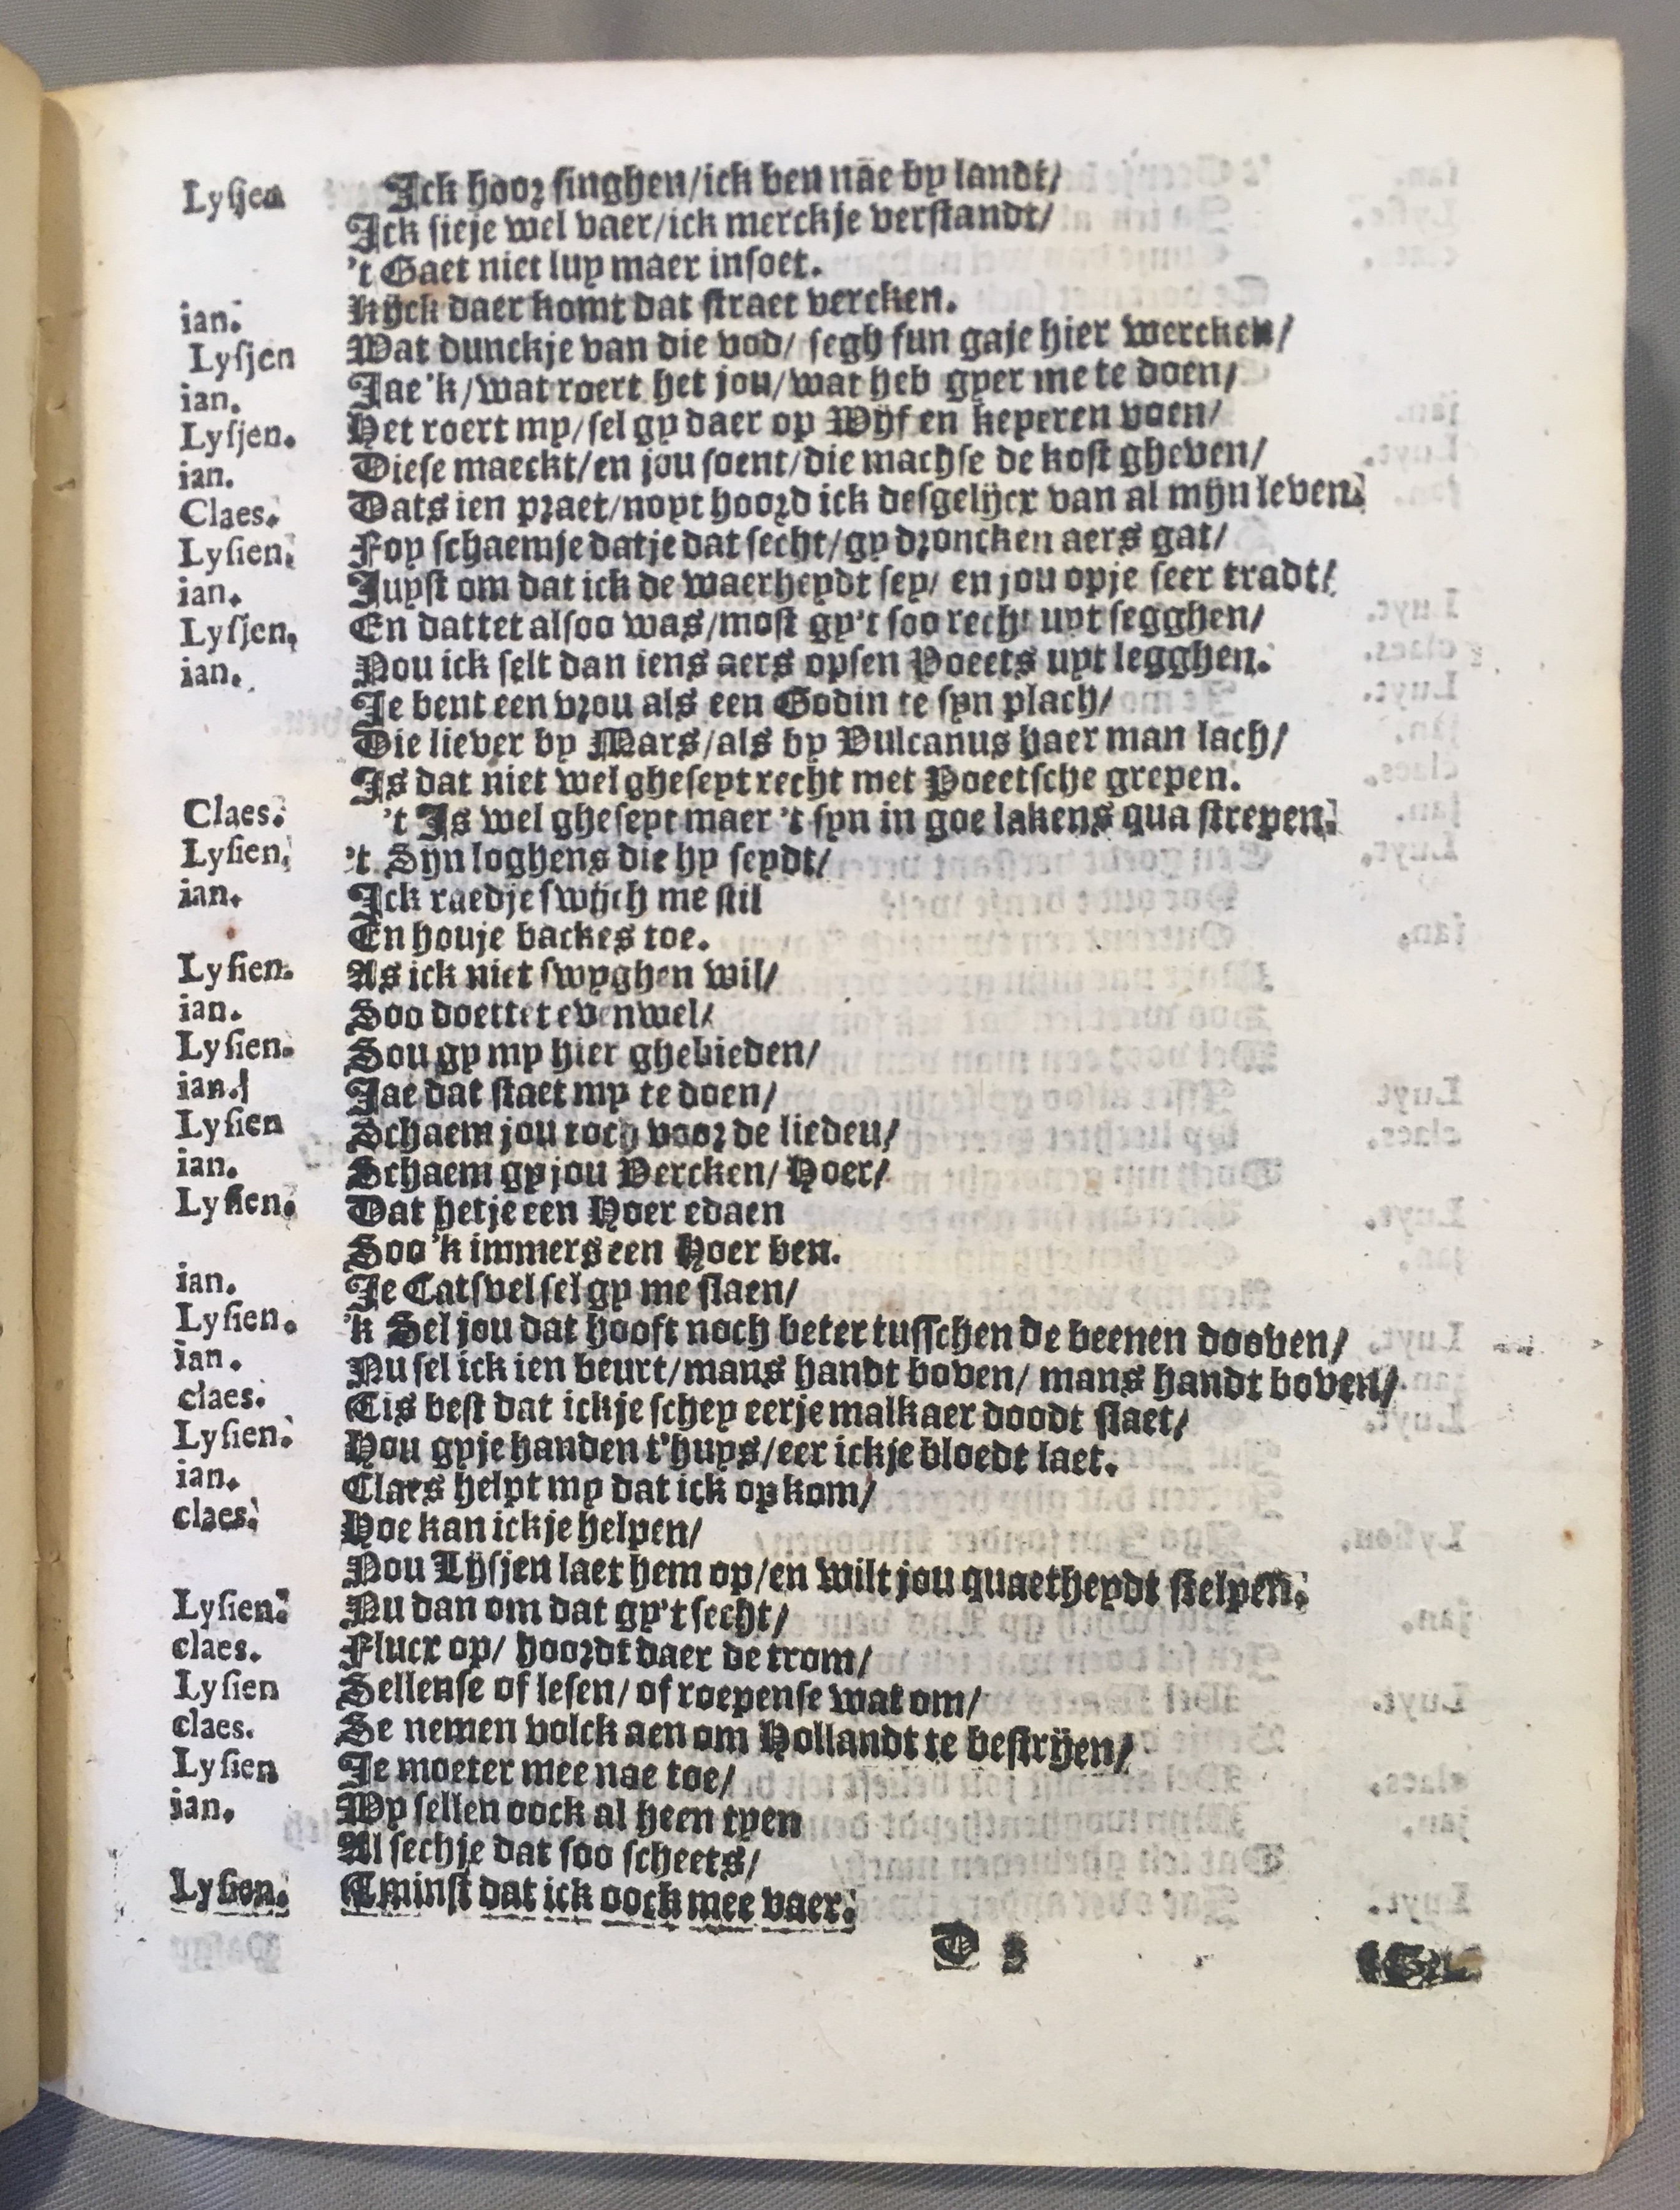 Lysjen Ick hoor singhen/ick ben nae by landt/
Ick sieje wel vaer/ick merckje verstandt/
't Gaet niet luy maer insoet.
ian. Kijck daer komt dat straet vercken.
Lysjen Wat dunckje van die vod/ segh fun gaje hier wercken/
ian. Jae 'k/wat roert het jou/wat heb gyer me te doen/
Lysjen. Het roert my/sel gy daer op Wijf en keyeren voen/
ian. Diese maeckt/en jou soent/die machse de kost gheven/
Claes. Dats ien praet/noyt hoord ick desgelijcx van al mijn leven.
Lysien. Foy schaemje datje dat secht/gy droncken aers gat/
ian. Juyst om dat ick de waerheydt sey/ en jou opje seer tradt/
Lysjen, En dattet alsoo was/most gy't soo recht uyt segghen/
ian. Nou ick selt dan iens aers opsen Poeets uyt legghen.
Je bent een vrou als een Godin te syn plach/
Die liever by Mars/als by Vulcanus haer man lach/
Is dat niet wel gheseyt recht met Poeetsche grepen.
Claes. 't Is wel gheseyt maer 't syn in goe lakens qua strepen.
Lysien. 't Sijn loghens die hy seydt/
ian. Ick raedje swijch me stil
En houje backes toe.
Lysien. As ick niet swyghen wil/
ian. Soo doettet evenwel/
Lysien. Sou gy my hier ghebieden/
ian. Jae dat staet my te doen/
Lysien Schaem jou toch voor de liedeu/
ian. Schaem gy jou Vercken/ Hoer/
Lysien. Dat hetje een Hoer edaen
Soo 'k immers een Hoer ben.
ian. Je Catsvel sel gy me slaen/
Lysien. 'k Sel jou dat hooft noch beter tusschen de beenen dooven/
ian. Nu sel ick ien beurt/mans handt boven/ mans handt boven/
claes. Tis best dat ickje schey eerje malkaer doodt slaet/
Lysien. Hou gyje handen t'huys/eer ickje bloedt laet.
ian. Claes helpt my dat ick op kom/
claes. Hoe kan ickje helpen/
Nou Lijsjen laet hem op/en wilt jou quaetheydt stelpen.
Lysien. Nu dan om dat gy't secht/
claes. Flucx op/ hoordt daer de trom/
Lysien Sellense of lesen/ of roepense wat om/
claes. Se nemen volck aen om Hollandt te bestrijen/
Lysien Je moeter mee nae toe/
ian. Wy sellen oock al heen tyen
Al sechje dat soo scheets/
Lysien. Tminst dat ick oock mee vaer.
D 3